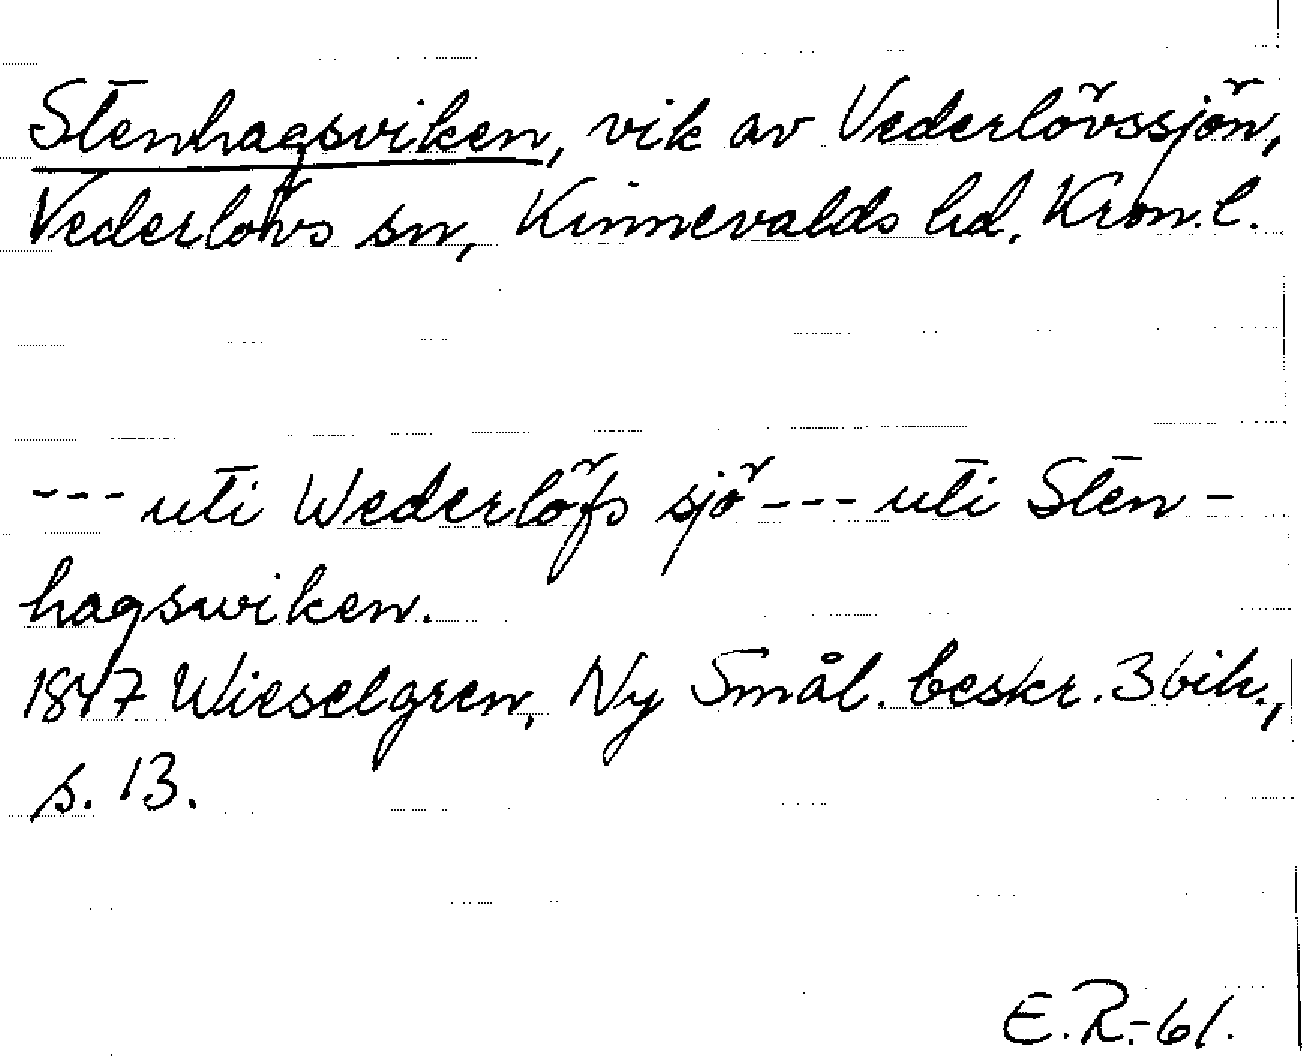 Stenhagsviken, vik av Vederlövssjön,
Vederlövs sn, Kinnevalds hd. Kron.l.
--- uti Wederlöfs sjö --- uti Sten-
hagswiken.
1847 Wieselgren, Ny Smål. beskr. 3 bih.,
s. 13.
E.R.-61.